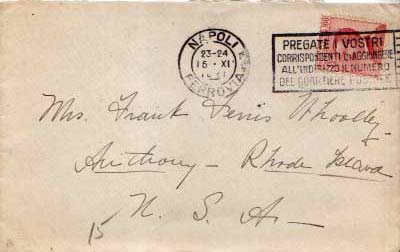 NAPOLI
23-24
15 · XI
FERROVIA
PREGATE I VOSTRI
CORRISPONDENTI D'AGGIUNGERE
ALL'INDIRIZZO IL NUMERO
DEL QUARTIERE POSTALE
Mrs. Frank Denis Whooley,
Anthony — Rhode Island
U. S. A —
15